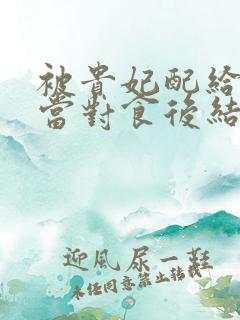 被貴妃配給
當對食後結
迎風尿一鞋
未經同意禁止轉載